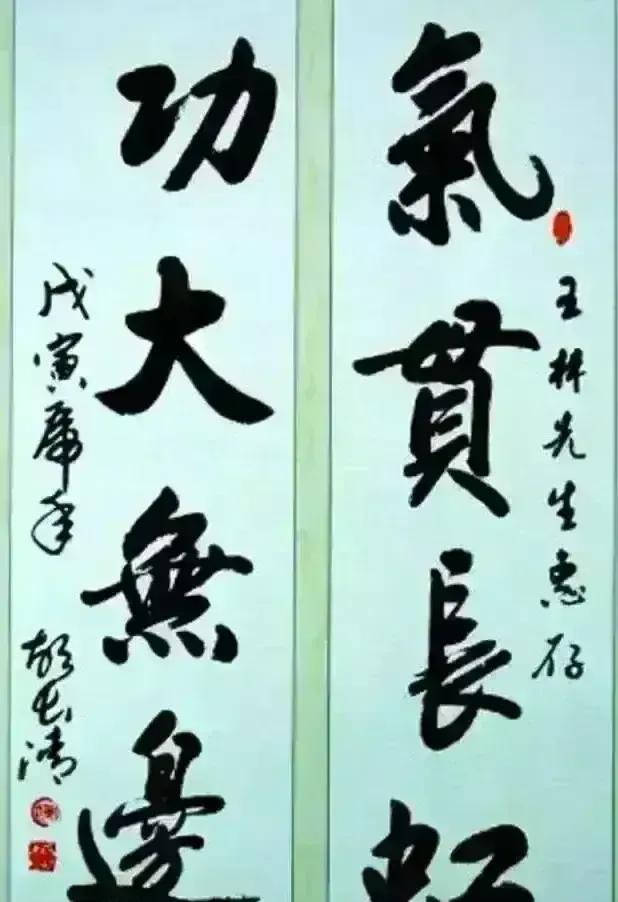 王林先生惠存
氣貫長虹
功大無邊
戊寅虎年
胡长清